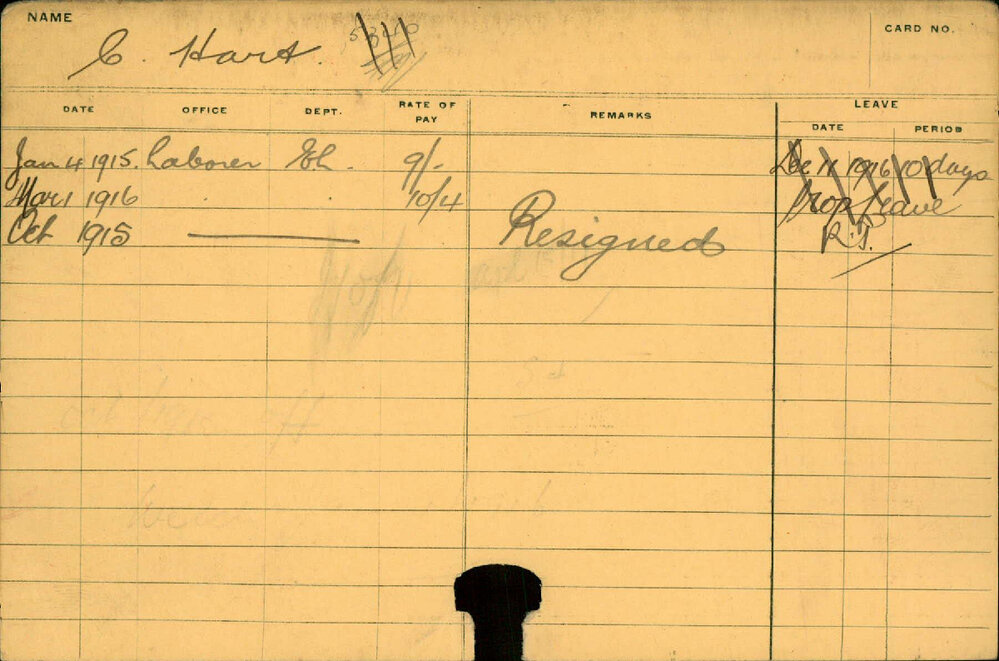 NAME
C. Hart.
CARD NO.
DATE OFFICE DEPT. RATE OF PAY REMARKS LEAVE
DATE PERIOD
Jan 4 1915. Laborer E.L. 9/- Dec 11 1916 10 days
Mar 1 1916 10/4 Prop Leave
Oct 1915 Resigned R.J.